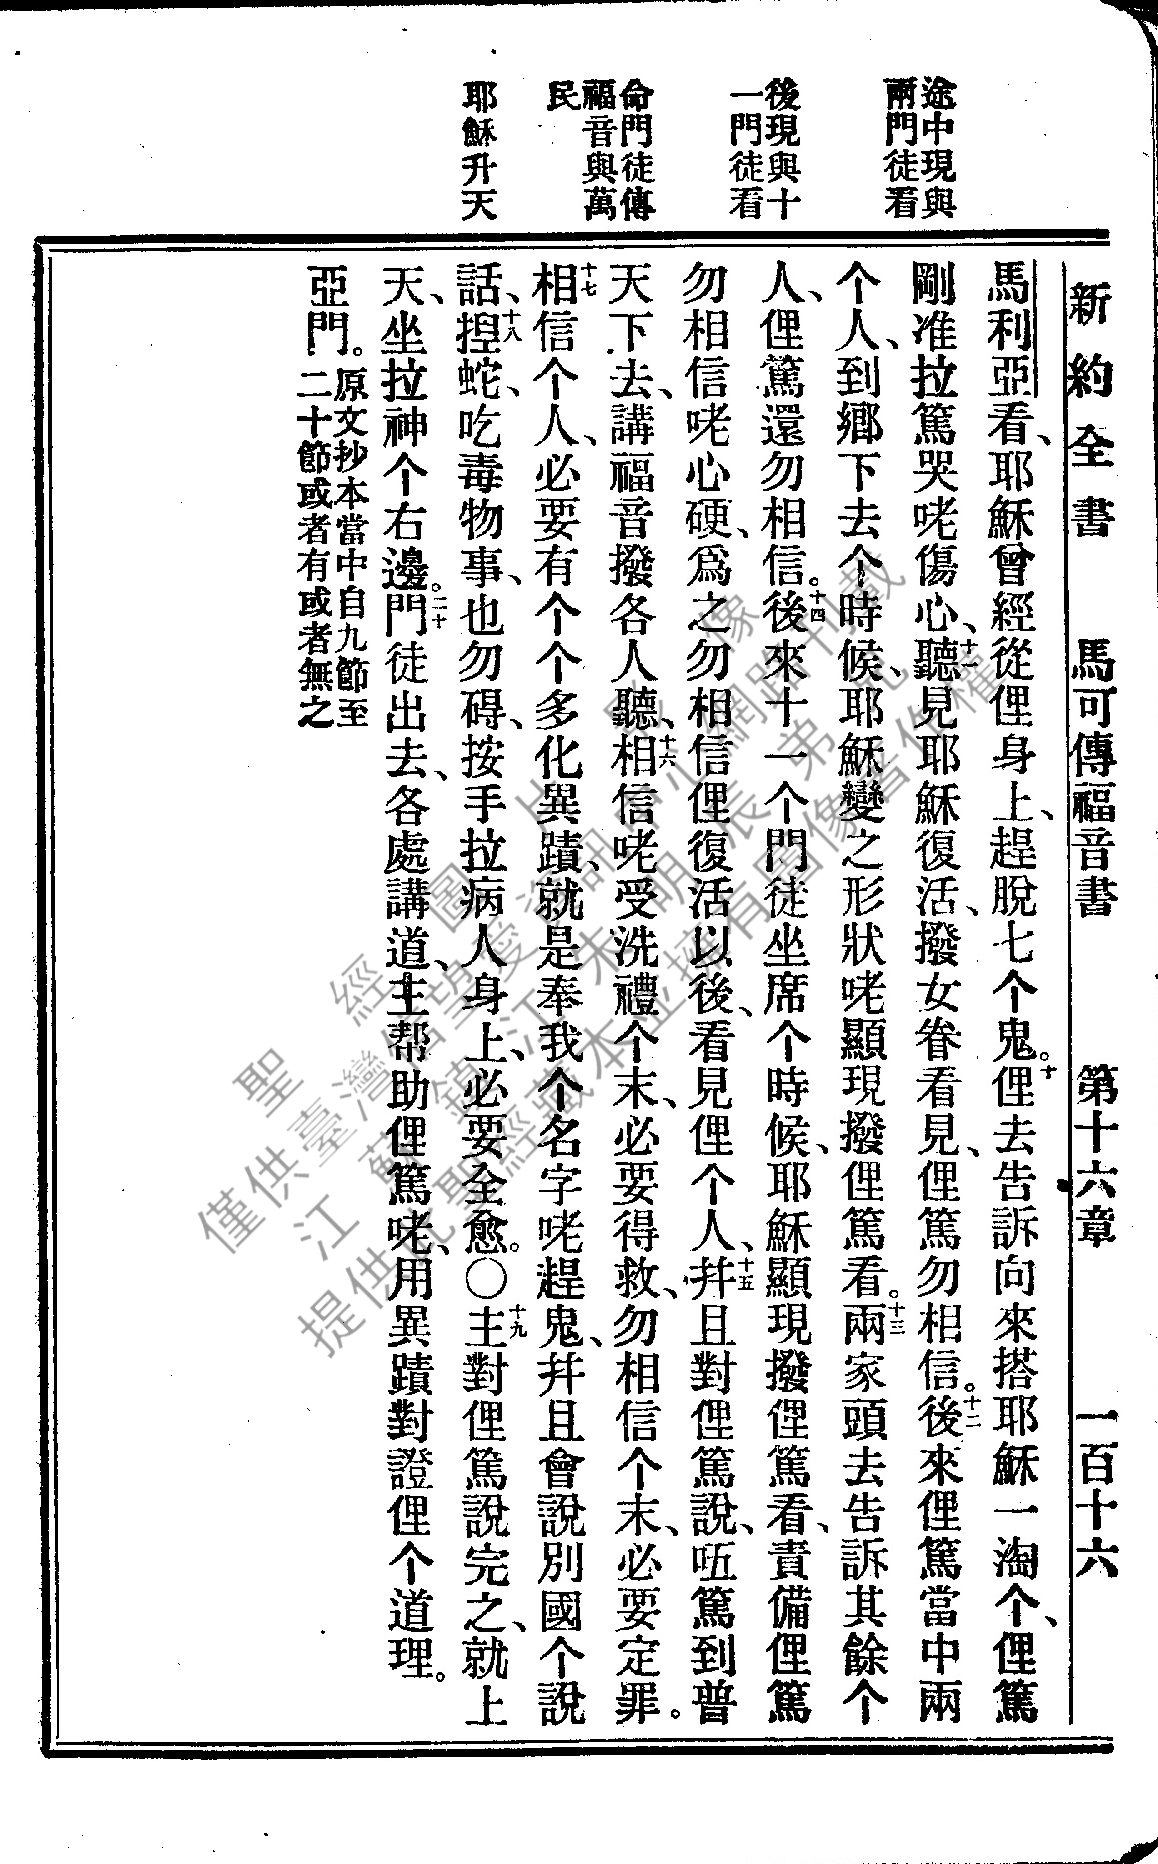 新約全書 馬可傳福音書 第十六章 一百十六
途中現與
兩門徒看
後現與十
一門徒看
命門徒傳
福音與萬
民
耶穌升天
馬利亞看、耶穌曾經從俚身上、趕脫七个鬼。十俚去告訴向來搭耶穌一淘个、俚篤
剛准拉篤哭咾傷心、十一聽見耶穌復活、撥女眷看見、俚篤勿相信。十二後來俚篤當中兩
个人、到鄉下去个時候、耶穌變之形狀咾顯現撥俚篤看。十三兩家頭去告訴其餘个
人、俚篤還勿相信。十四後來十一个門徒坐席个時候、耶穌顯現撥俚篤看、責備俚篤
勿相信咾心硬、爲之勿相信俚復活以後、看見俚个人、十五幷且對俚篤說、㕶篤到普
天下去、講福音撥各人聽、十六相信咾受洗禮个末、必要得救、勿相信个末、必要定罪。
十七相信个人、必要有个个多化異蹟、就是奉我个名字咾趕鬼、幷且會說別國个說
話、十八揑蛇、吃毒物事、也勿碍、按手拉病人身上、必要全愈。〇十九主對俚篤說完之、就上
天、坐拉神个右邊。二十門徒出去、各處講道、主帮助俚篤咾、用異蹟對證俚个道理。
亞門。原文抄本當中自九節至
二十節或者有或者無之
聖經圖片影像
僅供臺灣信望愛資訊中心網路刊載
江蘇鎮江朱明辰弟兄
提供此聖經藏本並擁有圖像著作權